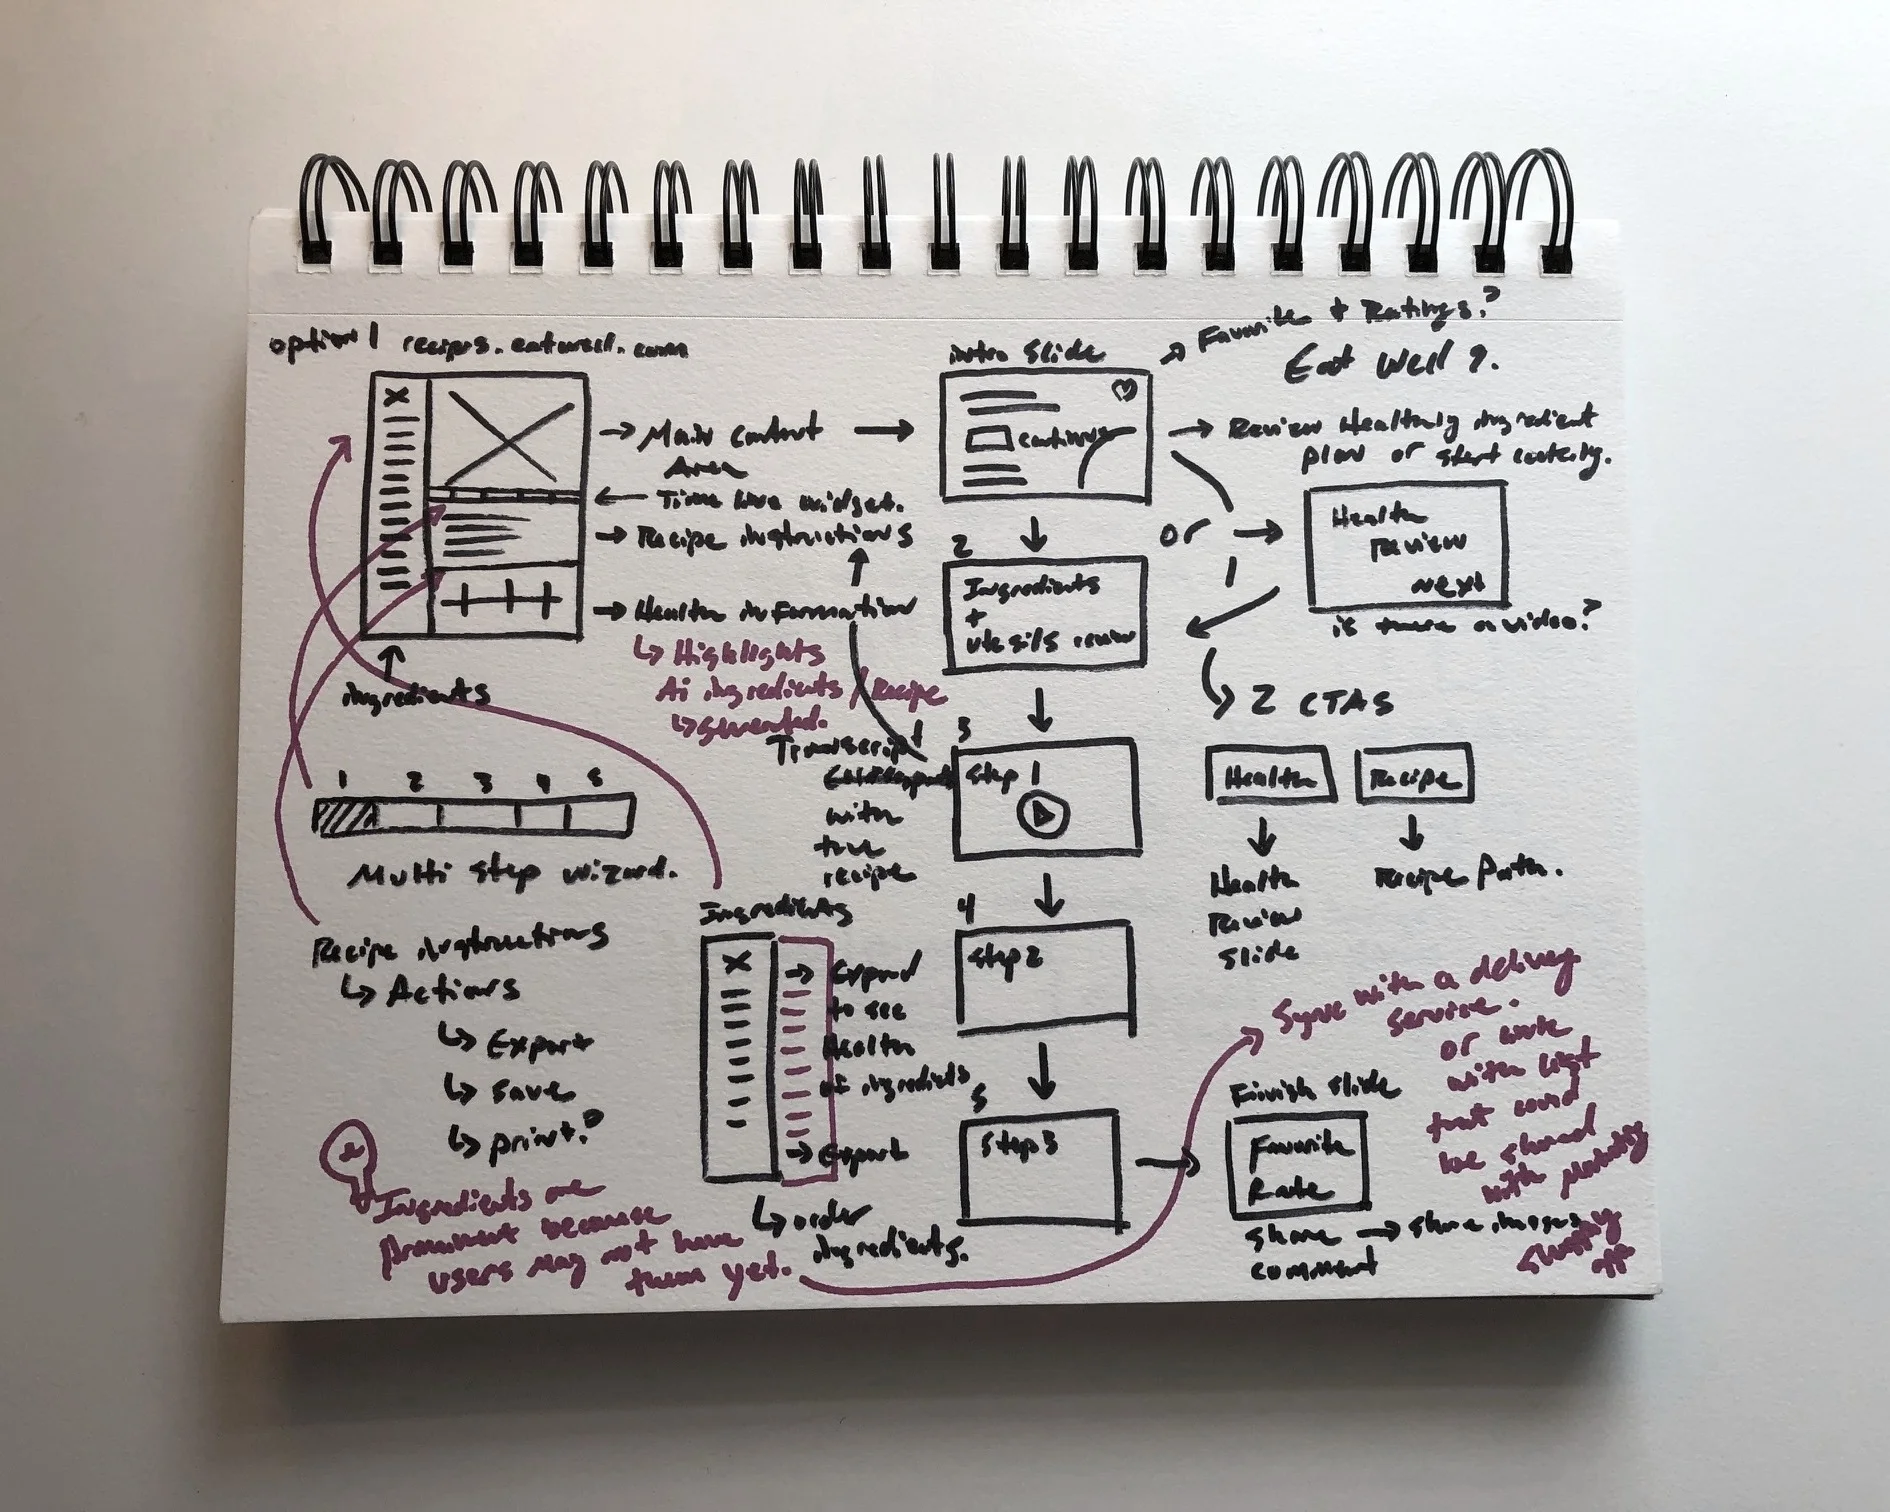 option 1 recipes.eatwell.com
X
→ Main Content
Area
← Time line widget.
→ Recipe instructions
→ Health information
↳ Highlights
Ai ingredients / Recipe
Transcript
with
the
recipe
ingredients
1 2 3 4 5
Multi step wizard.
Recipe instructions
↳ Actions
↳ Export
↳ save
↳ print?
Ingredients are
prominent because
users may not have
them yet.
Ingredients
X
→ Expand
to see
Health
of ingredients
→ Export
↳ order
ingredients.
intro slide
continue
2
Ingredients
+
utensils review
3
Step 1
4
Step 2
5
Step 3
→ Favorite + Ratings?
Eat Well ?.
→ Review Healthy ingredient
plan or start cooking.
or
Health
Review
next
is there a video?
2 CTAS
Health
Recipe
Health
Review
Slide
Recipe Path.
Sync with a delivery
service.
or work
with list
that could
be shared
with
Finish slide
Favorite
Rate
Share → share images
comment